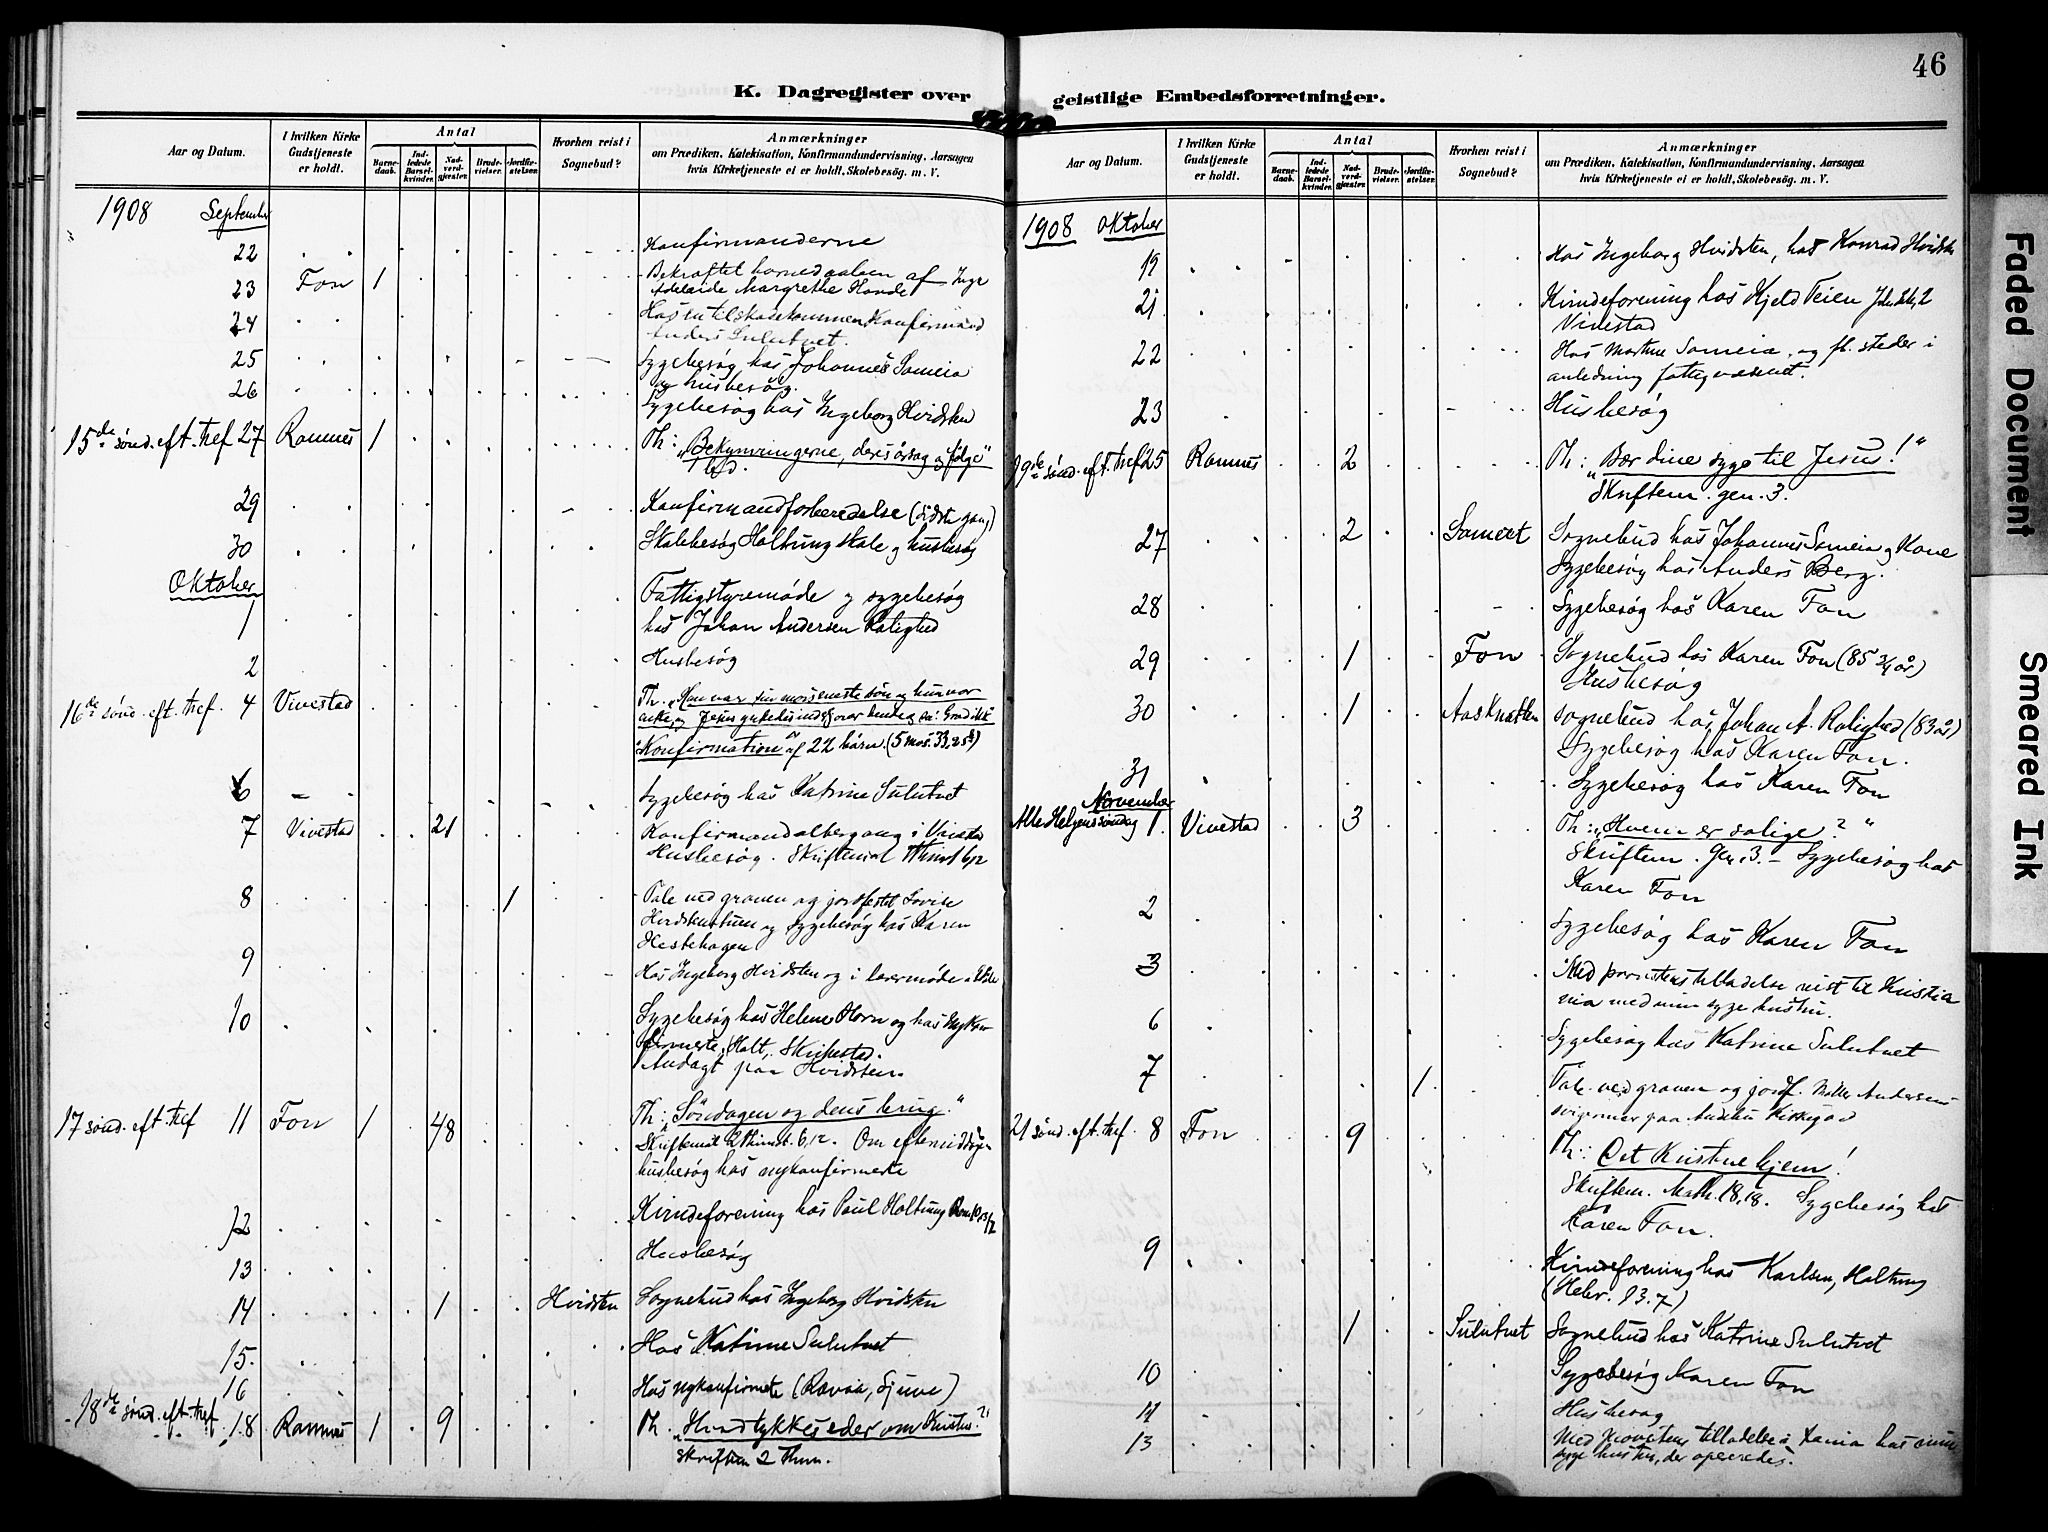 46
K. Dagregister over geistlige Embedsforretninger.
Aar og Datum.
I hvilken Kirke Gudstjeneste er holdt.
Antal
Barnedaab.
Indledede Barselkvinder.
Nadverdgjester.
Brudevielser.
Jordfæstelser.
Hvorhen reist i Sognebud?
Anmærkninger
om Prædiken, Katekisation, Konfirmandundervisning, Aarsagen
hvis Kirketjeneste ei er holdt, Skolebesøg, m. V.
1908 September
22 Konfirmanderne
23 Fon 1 Bekræftet barnedaaben af Inga
Adelaide Margrethe Hande
24 Hos en tilskadekommen Konfirmand
Anders Sulutvet.
25 Sygebesøg hos Johannes Someia
og husbesøg.
26 Sygebesøg hos Ingeborg Hvidsten
15de sønd. eft. tref 27 Ramnes 1 Th: „Bekymringerne, deres årsag og følge"
29 Konfirmandforberedelse (sidste gang)
30 Skolebesøg Holtung skole og husbesøg
Oktober
1 Fattigstyremøde og sygebesøg
hos Johan Andersen Rolighed
2 Husbesøg
16de sønd. eft. tref. 4 Vivestad Th: „Han var sin mors eneste søn og hun var
enke, og Jesus ynkedes inderlig over hende
Konfirmation af 22 børn. (5 Mos. 33,25b)
6 Sygebesøg hos Katrine Sulutvet
7 Vivestad 21 Konfirmandaltergang i Vivestad
Husbesøg. Skriftemål 1 Thim 6,12
8 1 Tale ved graven og jordfestet Lovise
Hvidstentuen og sygebesøg hos Karen
Hestehagen
9 Hos Ingeborg Hvidsten og i lærermøde
10 Sygebesøg hos Helene Horn og hos nykon
firmerte, Holt, Skikestad.
Andagt paa Hvidsten.
17 sønd. eft. tref 11 Fon 1 48 Th: „Søndagen og dens brug."
Skriftemål 1 Thimot. 6,12. Om eftermiddagen
husbesøg hos nykonfirmerte
12 Kvindeforening hos Paul Holtung Rom 10,13
13 Husbesøg
14 1 Hvidsten Sognebud hos Ingeborg Hvidsten
15. Hos Katrine Sulutvet
16 Hos nykonfirmete (Ravaa, Sjuve)
18de sønd. eft. tref. 18 Ramnes 1 9 Th. „Hvad tykkes eder om Kristus?"
Skriftem 2 Thim.
Aar og Datum.
I hvilken Kirke Gudstjeneste er holdt.
Antal
Barnedaab.
Indledede Barselkvinder.
Nadverdgjester.
Brudevielser.
Jordfæstelser.
Hvorhen reist i Sognebud?
Anmærkninger
om Prædiken, Katekisation, Konfirmandundervisning, Aarsagen
hvis Kirketjeneste ei er holdt, Skolebesøg, m. V.
1908 Oktober
19 Hos Ingeborg Hvidsten, hos Konrad Hvidsten
21 Kvindeforening hos Kjeld Teien
Vivestad
22 Hos Martine Someia, og fl. steder i
anledning fattigvæsenet.
23 Husbesøg
19de sønd. eft. tref 25 Ramnes 2 Th: „Bær dine syge til Jesus!"
Skriftem. gen. 3.
27 2 Someet Sognebud hos Johannes Someia og Kone
Sygebesøg hos Anders Berg.
28 Sygebesøg hos Karen Fon
29 1 Fon Sognebud hos Karen Fon (85 3/4 år)
Husbesøg
30 1 Aasknatten Sognebud hos Johan A. Rolighed (83 år)
Sygebesøg hos Karen Fon.
31 Sygebesøg hos Karen Fon
November
Alle Helgens søndag 1. Vivestad 3 Th: „Hvem er salige?"
Skriftem. Gen. 3. – Sygebesøg hos
Karen Fon
2 Sygebesøg hos Karen Fon
3 Med provstens tilladelse reist til Kristia
nia med min syge hustru.
6 Sygebesøg hos Katrine Sulutvet
7 1 Tale ved graven og jordf. Møller Andersens
svigermor paa Andebu Kirkegård
21 sønd. eft. tref. 8 Fon 9 Th: Det Kristne hjem!
Skriftem. Math. 18,18. Sygebesøg hos
Karen Fon.
9 Kvindeforening hos Karlsen, Holtung
(Hebr. 13.7)
1 Sulutvet Sognebud hos Katrine Sulutvet
10 Sygebesøg Karen Fon
11 Husbesøg
13 Med Provstens tilladelse i Xania hos min
syge hustru, der opereredes.
Faded Document
Smeared Ink